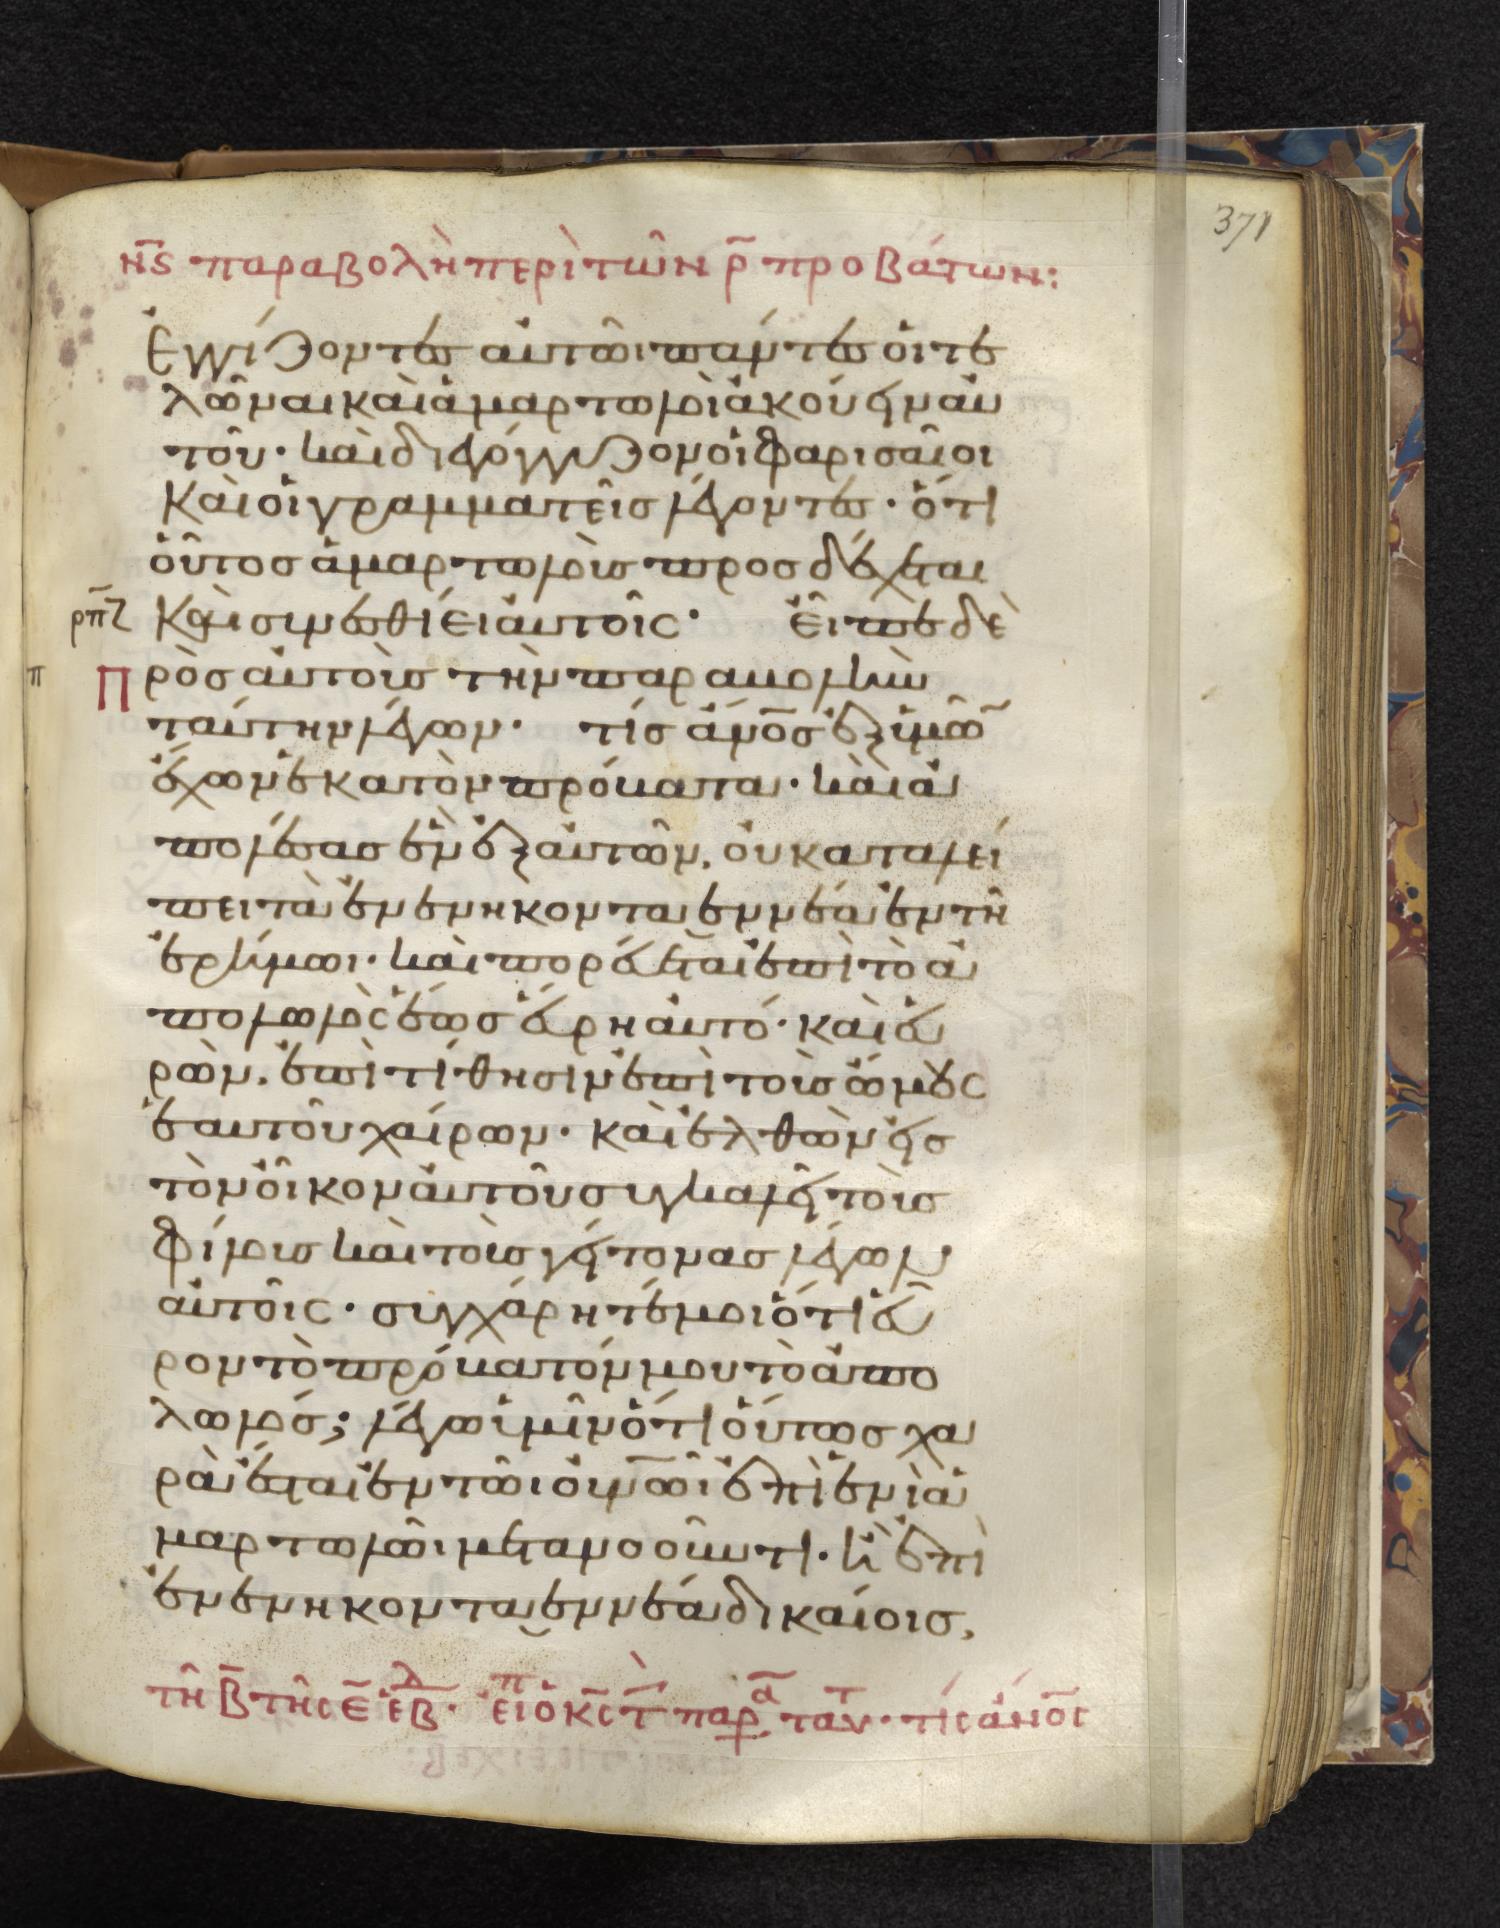 371
ν̄ϛ παραβολὴ περὶ τῶν ρ̄ προβάτων:
Ἐγγίζοντες αὐτῶι πάντες οἱ τε
λῶναι καὶ ἁμαρτωλοὶ ἀκούειν αὐ
τοῦ· καὶ διεγόγγυζον οἱ φαρισαῖοι
Καὶ οἱ γραμματεῖς λέγοντες· ὅτι
οὗτος ἁμαρτωλοὺς προσδέχεται
ρπ̄ζ Καὶ συνεσθίει αὐτοῖς· εἶπε δὲ
Πρὸς αὐτοὺς τὴν παραβολὴν
ταύτην λέγων· τίς ἄν̅ο̅ς ἐξ ὑμῶ̅
ἔχων ἑκατὸν πρόβατα· καὶ ἀ
πολέσας ἓν ἐξ αὐτῶν. οὐ καταλεί
πει τὰ ἐνενηκονταεννέα ἐν τῆ
ἐρήμωι· καὶ πορεύεται ἐπὶ τὸ ἀ
πολωλὸς ἕως εὕρη αὐτό· καὶ εὑ
ρὼν. ἐπιτίθησιν ἐπὶ τοὺς ὤμους
ἑαυτοῦ χαίρων· καὶ ἐλθὼν εἰς
τὸν οἶκον αὐτοῦ συγκαλεῖ τοὺς
φίλους καὶ τοὺς γείτονας λέγων
αὐτοῖς· συγχάρητέ μοι ὅτι εὗ
ρον τὸ πρόβατόν μου τὸ ἀπο
λωλός; λέγω ὑμῖν ὅτι οὕτως χα
ρὰ ἔσται ἐν τῶι οὐν̅ῶι ἐπὶ ἑνὶ ἁ
μαρτωλῶι μετανοοῦντι· κ̀ ἐπὶ
ἐνενηκονταεννέα δικαίοις,
τῆ β̄ τῆς ε̄ ἑβ̄λ· εἶπ ὁ κ̅ς τ̀ παρα̅ ταυτ· τίς ἄν̅ο̅ς